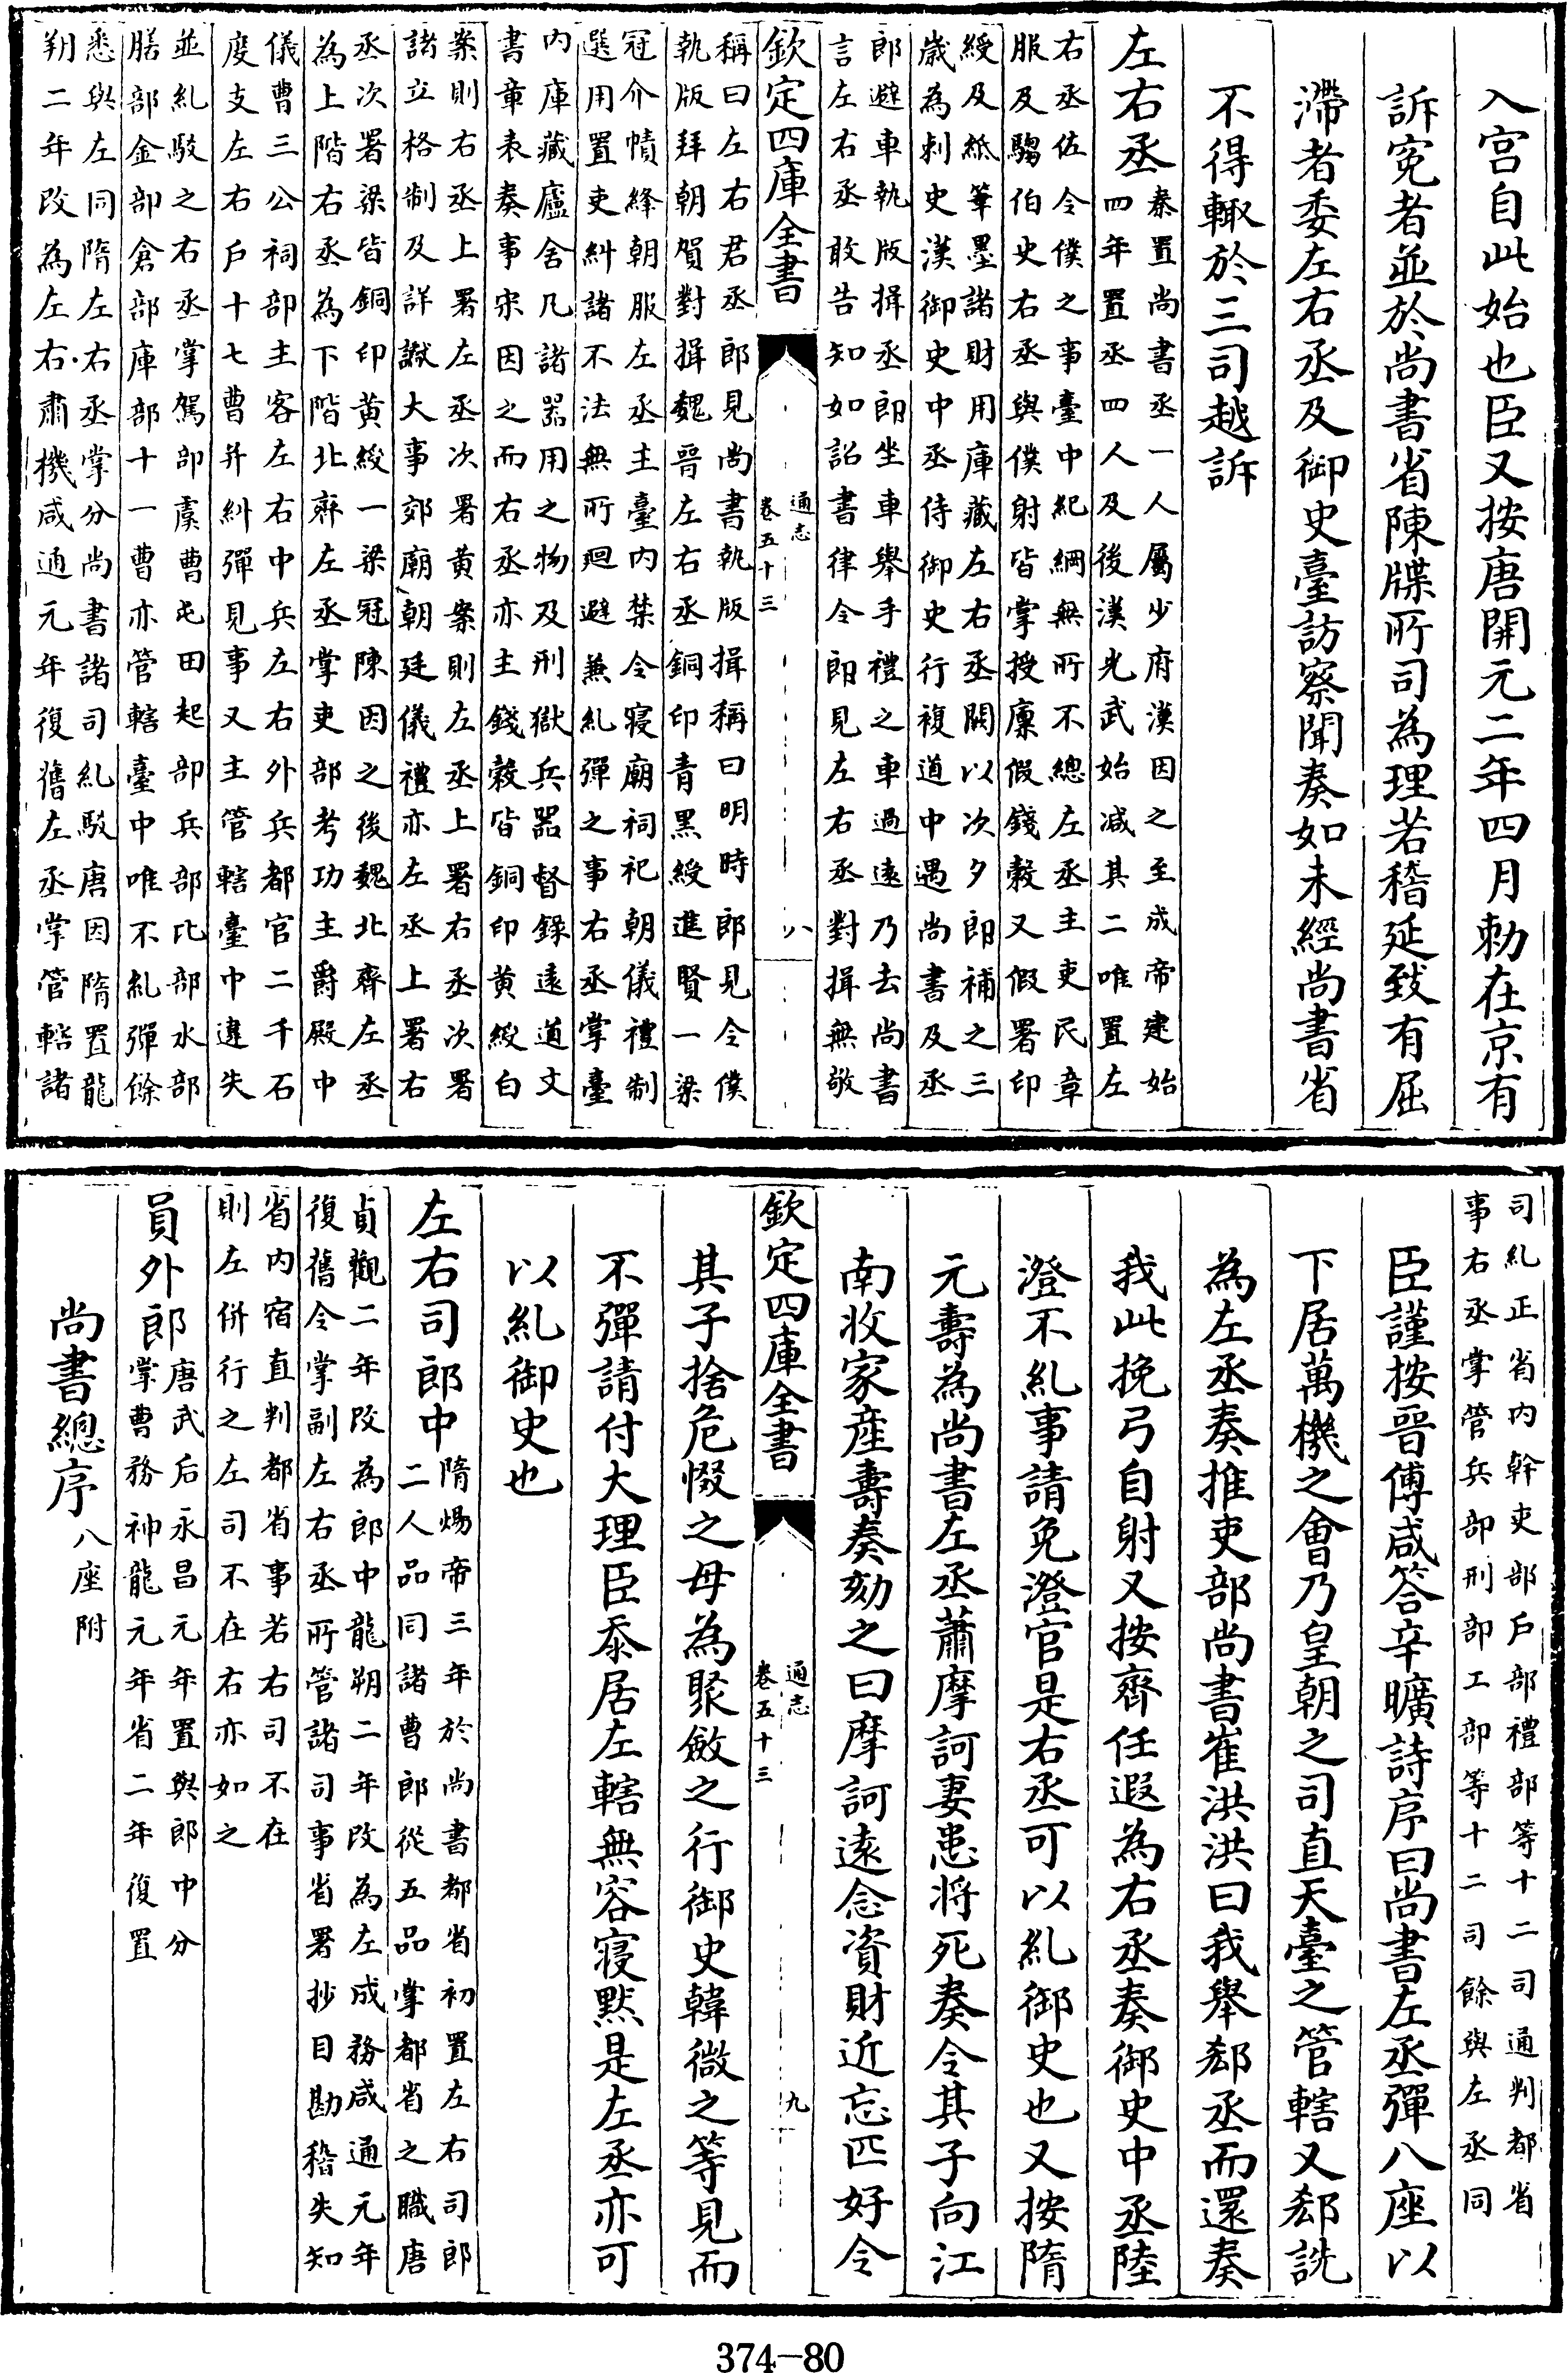 入宫自此始也臣又按唐開元二年四月勅在京有
訴寃者並於尚書省陳牒所司為理若稽延致有屈
滯者委左右丞及御史臺訪察聞奏如未經尚書省
不得輙於三司越訴
左右丞
秦置尚書丞一人屬少府漢因之至成帝建始
四年置丞四人及後漢光武始減其二唯置左
右丞佐令僕之事臺中紀綱無所不總左丞主吏民章
服及騶伯史右丞與僕射皆掌授廩假錢榖又假署印
綬及紙筆墨諸財用庫藏左右丞闕以次夕郎補之三
歲為刺史漢御史中丞侍御史行複道中遇尚書及丞
郎避車執版揖丞郎坐車舉手禮之車過逺乃去尚書
言左右丞敢告知如詔書律令郎見左右丞對揖無敬
欽定四庫全書
通志
卷五十三
八
稱曰左右君丞郎見尚書執版揖稱曰明時郎見令僕
執版拜朝賀對揖魏晉左右丞銅印青黑綬進賢一梁
冠介幘絳朝服左丞主臺内禁令寢廟祠祀朝儀禮制
選用置吏糾諸不法無所迴避兼糺彈之事右丞掌臺
内庫藏廬舍凡諸器用之物及刑獄兵器督錄逺道文
書章表奏事宋因之而右丞亦主錢榖皆銅印黄綬白
案則右丞上署左丞次署黄案則左丞上署右丞次署
諸立格制及詳讞大事郊廟朝廷儀禮亦左丞上署右
丞次署梁皆銅印黄綬一梁冠陳因之後魏北齊左丞
為上階右丞為下階北齊左丞掌吏部考功主爵殿中
儀曹三公祠部主客左右中兵左右外兵都官二千石
度支左右戶十七曹并糾彈見事又主管轄臺中違失
並糺駮之右丞掌駕部虞曹屯田起部兵部比部水部
膳部金部倉部庫部十一曹亦管轄臺中唯不糺彈餘
悉與左同隋左右丞掌分尚書諸司糺駮唐因隋置龍
朔二年改為左右肅機咸通元年復舊左丞掌管轄諸
司糺正省内幹吏部戶部禮部等十二司通判都省
事右丞掌管兵部刑部工部等十二司餘與左丞同
臣謹按晉傅咸答辛曠詩序曰尚書左丞彈八座以
下居萬機之會乃皇朝之司直天臺之管轄又郄詵
為左丞奏推吏部尚書崔洪洪曰我舉郄丞而還奏
我此挽弓自射又按齊任遐為右丞奏御史中丞陸
澄不糺事請免澄官是右丞可以糺御史也又按隋
元壽為尚書左丞蕭摩訶妻患將死奏令其子向江
南收家産壽奏劾之曰摩訶逺念資財近忘匹好令
欽定四庫全書
通志
卷五十三
九
其子捨危惙之母為聚斂之行御史韓微之等見而
不彈請付大理臣忝居左轄無容寢默是左丞亦可
以糺御史也
左右司郎中
隋煬帝三年於尚書都省初置左右司郎
二人品同諸曹郎從五品掌都省之職唐
貞觀二年改為郎中龍朔二年改為左成務咸通元年
復舊令掌副左右丞所管諸司事省署抄目勘稽失知
省内宿直判都省事若右司不在
則左併行之左司不在右亦如之
員外郎
唐武后永昌元年置與郎中分
掌曹務神龍元年省二年復置
尚書總序
八座附
374-80